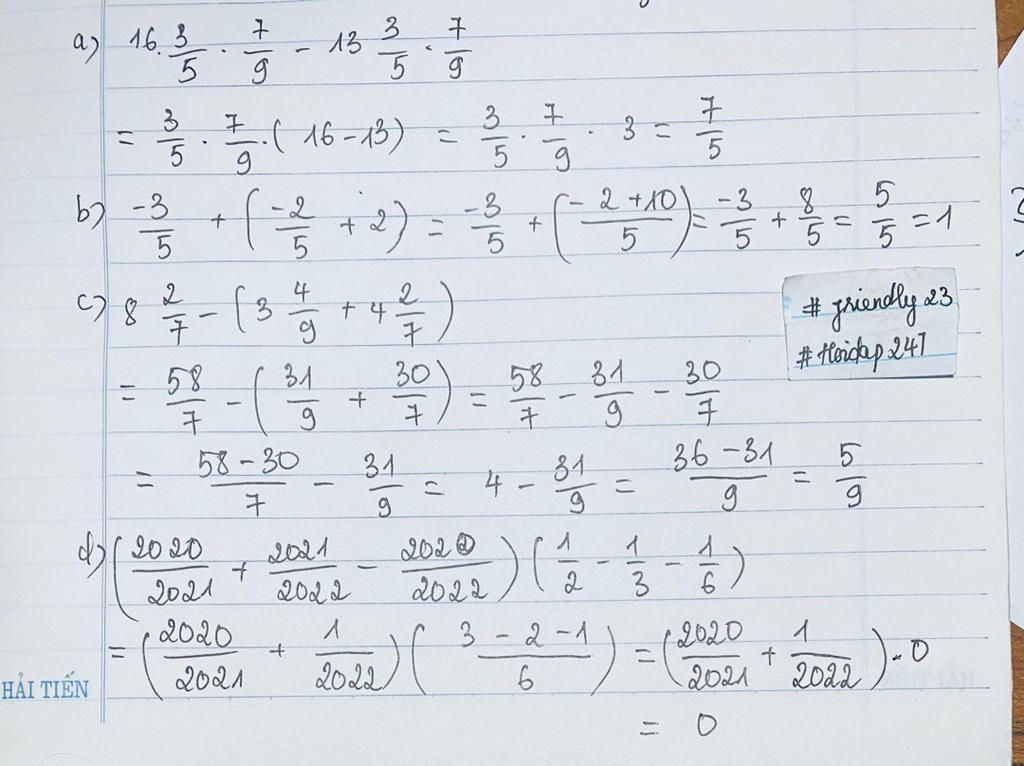 a) 16. 3/5 . 7/9 - 13 3/5 . 7/9
= 3/5 . 7/9 . ( 16 - 13) = 3/5 . 7/9 . 3 = 7/5
b) -3/5 + ( -2/5 + 2 ) = -3/5 + ( -2+10/5 ) = -3/5 + 8/5 = 5/5 = 1
c) 8 2/7 - ( 3 4/9 + 4 2/7 )
# friendly 23
# Hoidap 247
= 58/7 - ( 31/9 + 30/7 ) = 58/7 - 31/9 - 30/7
= 58-30/7 - 31/9 = 4 - 31/9 = 36-31/9 = 5/9
d) ( 2020/2021 + 2021/2022 - 2020/2022 ) ( 1/2 - 1/3 - 1/6 )
= ( 2020/2021 + 1/2022 ) ( 3-2-1/6 ) = ( 2020/2021 + 1/2022 ) . 0
HẢI TIẾN
= 0